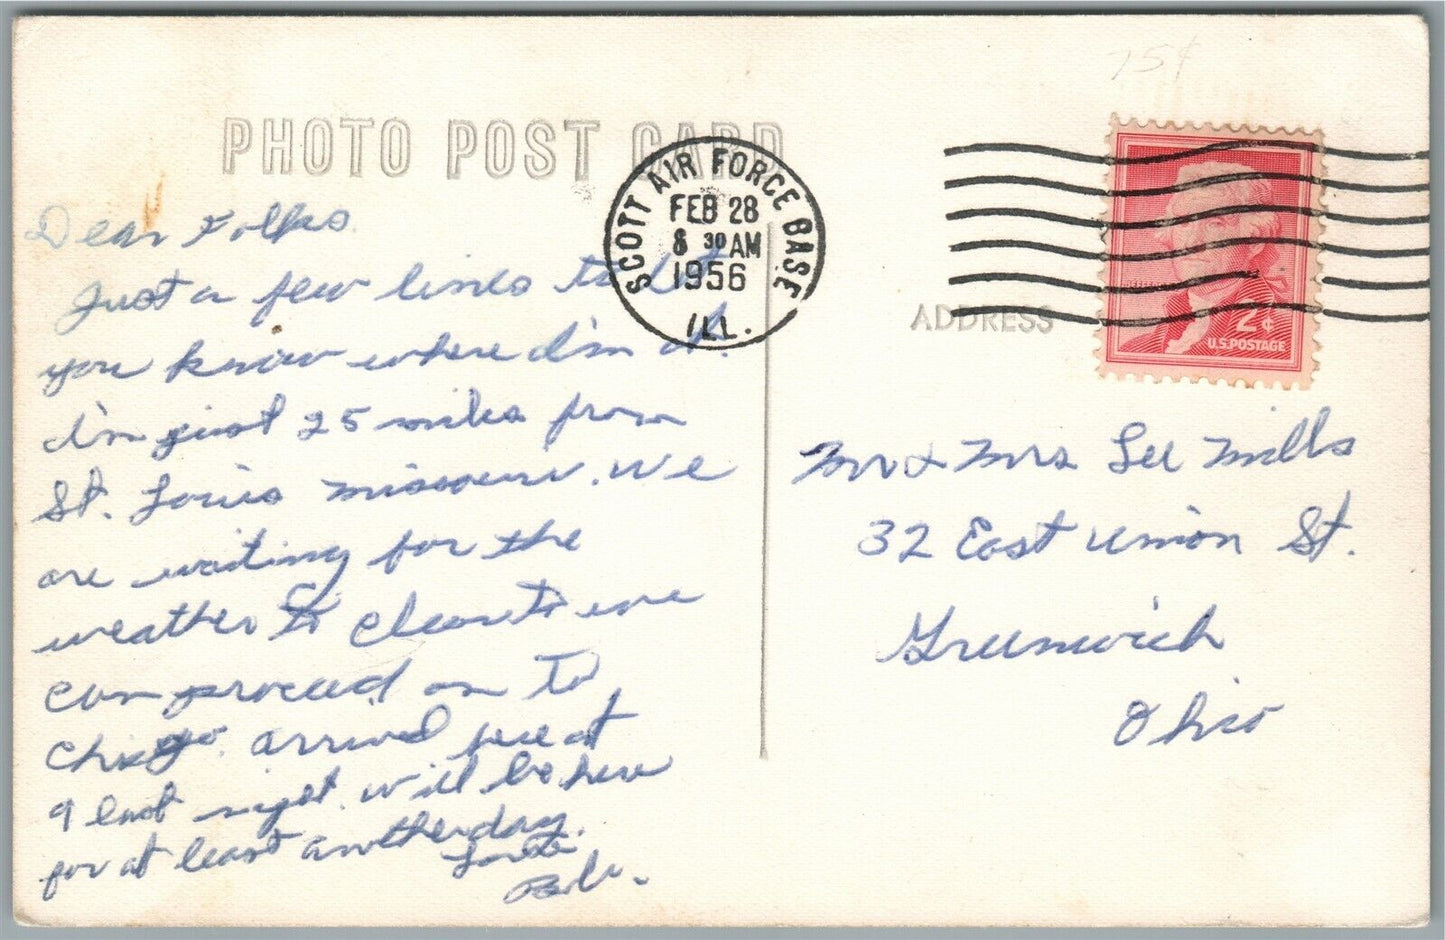 75¢
PHOTO POST CARD
SCOTT AIR FORCE BASE
FEB 28
8 30 AM
1956
ILL.
Dear Folks.
Just a few lines to let
you know where I'm at.
I'm just 25 miles from
St. Louis Missouri. We
are waiting for the
weather to clear so we
can proceed on to
Chicago. Arrived here at
9 last night. Will be here
for at least another day.
Love
Bob.
ADDRESS
2¢
U.S. POSTAGE
Mr & Mrs Lee Mills
32 East Union St.
Greenwich
Ohio